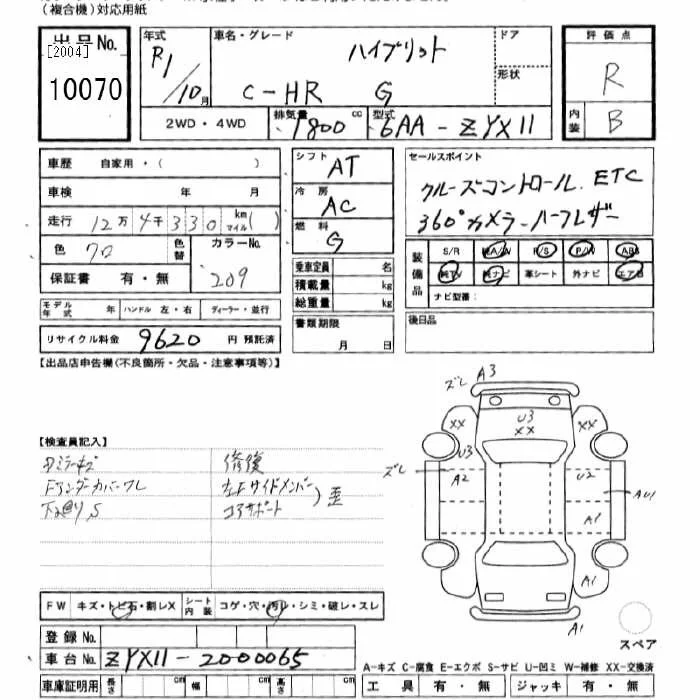 (複合機)対応用紙
出品No.
[2004]
10070
年式
R1/10月
車名・グレード
ハイブリット
C-HR G
ドア
形状
評価点
R
内装
B
2WD・4WD
排気量
1800 cc
型式
6AA-ZYX11
車歴 自家用・( )
車検 年 月
走行 12万4千330 km マイル( )
色 クロ
色替
カラーNo.
209
保証書 有・無
モデル年式 年 ハンドル 左・右 ディーラー・並行
リサイクル料金 9620 円 預託済
シフト AT
冷房 AC
燃料 G
乗車定員 名
積載量 kg
総重量 kg
書類期限
月 日
セールスポイント
クルーズコントロール. ETC
360°カメラ-ハーフレザー
装備品
S/R AA/W P/S P/W ABS
純TV 純ナビ 革シート 外ナビ エアB
ナビ型番:
後日品
【出品店申告欄(不良箇所・欠品・注意事項等)】
【検査員記入】
修復
左Fサイドメンバー
コアサポート
歪
Fアンダーカバーワレ
下廻りS
ズレ A3
XX
U3
XX
XX
U3
ズレ
A2
U2
AU1
A1
A1
A1
スペア
FW キズ・トビ石・割レX
シート内装 コゲ・穴・汚レ・シミ・破レ・スレ
登録No.
車台No. ZYX11-2000065
車庫証明用 長さ cm 幅 cm 高さ cm
A-キズ C-腐食 E-エクボ S-サビ U-凹ミ W-補修 XX-交換済
工具 有・無 ジャッキ 有・無